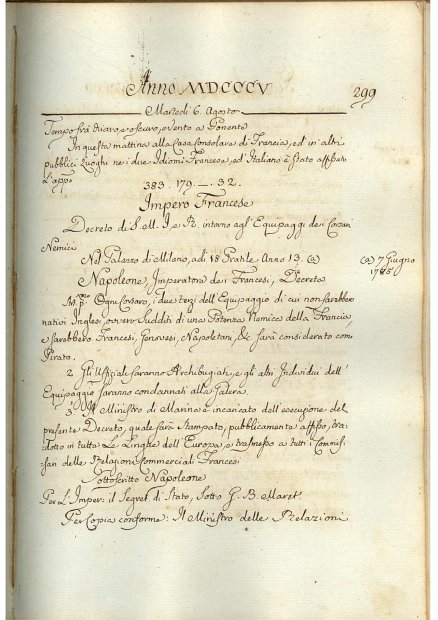 Anno MDCCCV.
299
Martedi 6. Agosto
Tempo frà chiaro, e oscuro, e vento a Ponente
In questa mattina alla Casa Consolare di Francia, ed in altri
pubblici Luoghi nei due Idiomi Francese, ed Italiano è stato affisso
L'app.
383. 179. — . 32.
Impero Francese
Decreto di S. M. I. e R. intorno agl'Equipaggi dei Corsari
Nemici
Nel Palazzo di Milano, adi 18 Pratile Anno 13. (a)
(a) 7 Giugno
Napoleone, Imperatore dei Francesi, Decreta
Art. p.mo Ogni Corsaro, i due terzi dell'Equipaggio di cui non sarebber
nativi Inglesi, ovvero Sudditi di una Potenza Nemica della Francia,
e sarebbero Francesi, Genovesi, Napoletani, &c sarà considerato com
Pirato.
2 Gli Uffiziali saranno Archibugiati, e gli altri Individui dell'
Equipaggio saranno condannati alla Galera.
3. Il Ministro di Marina è incaricato dell'esecuzione del
presente Decreto, quale sarà Stampato, pubblicamente affisso, tra:
dotto in tutte Le Lingue dell'Europa, e trasmesso a tutti i Commis:
sari delle Relazioni Commerciali Francesi
Sottoscritto Napoleone
Per L'Imper: il Segret: di Stato, Sotto G. B. Maret
Per Copia conforme: Il Ministro delle Relazioni